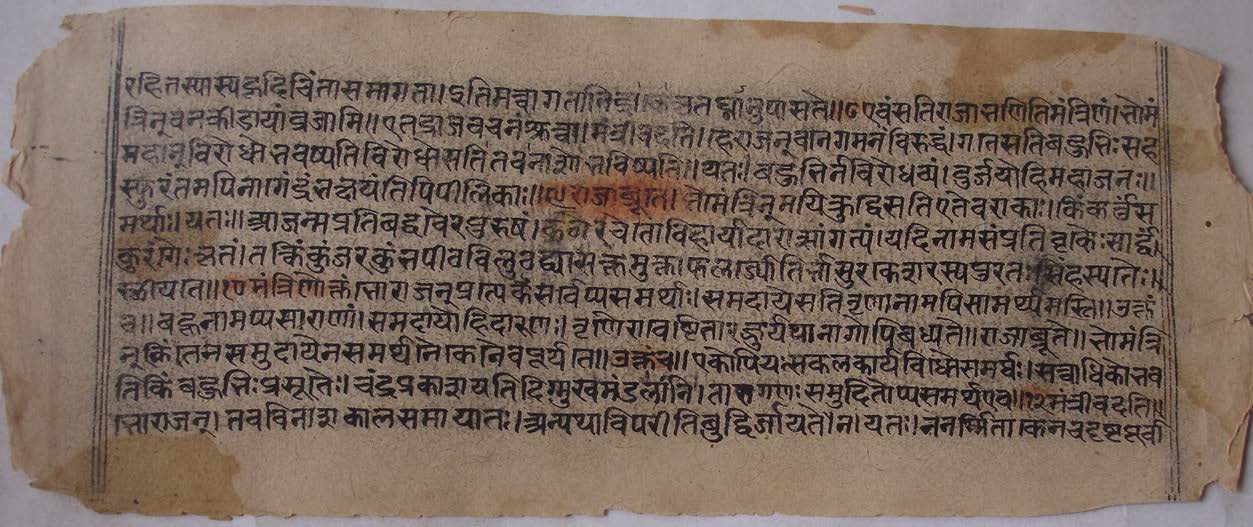 रहितस्यास्यहृदिचिंतासमागता। इतिमत्वागतातिके। तघ्नानुपासते॥८ एवंसतिराजाभणितिमंत्रिणं। भोमं
त्रिन्वनक्रीडायांव्रजामि॥ एतद्राजवचनंश्रुत्वा। मंत्रीवदति। हेराजन्वानगमनंविरुद्धं। गतिसतिबहुभिःसह
महान्विरोधोभवष्यतिविरोधेसतितवनाशोभविष्यति॥ यतः। बहुभिर्नविरोधव्यं। दुर्जयोहिमहाजनः॥
स्फुरंतमपिनागेंद्रंभक्षयंतिपिपीलिकाः॥ ए राजाब्रूते। भोमंत्रिन्मयिक्रुद्धेसतिएतेवराकाः। किंकर्त्तुंस
मर्थाः। यतः॥ आजन्मप्रतिबद्धवैरपुरुषं। विहार्यादारात्सांगत्यं। यदिनामसंप्रतिवृकैःसार्द्धं
कुरंगैःकृतं। तत्किंकुंजरकुंभपीव मुक्ताफलज्योतिर्भासुरकेशरस्यपुरतः। सिंहस्याग्रे।
स्थीयते॥ मंत्रिणोक्तं। भोराजन्प्रात्यकंसार्वेप्यसमर्थाः। समदायेसतितृणानामपिसामर्थ्यमस्ति॥ उक्तं
च॥ बहूनामप्यसाराणां। समदायोहिदारुणः। तृणैरावेष्टितारज्जुर्यथानागोपिबध्यते॥ राजाब्रूते॥ भोमंत्रि
न्किं। तमसमुदायेनसमर्थेनिकानिवपूर्यते॥ उक्तंच॥ एकोपियःसकलकार्यविधौसमर्थः। सत्वाधिकोभव
तिकिंबहुभिःप्रसूतैः। चंद्रप्रकाशयतिदिग्मुखमंडलानि। तारागणःसमुदितोप्यसमर्थएव॥ मंत्रीवदति॥
भोराजन्। तवविनाशकालसमायातः। अन्यथाविपरीतिबुद्धिर्जायतेन। यतः। ननिर्म्मिता। केनचदृष्टपूर्वा